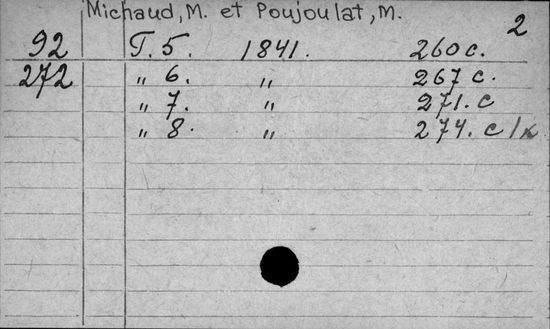 Michaud, M. et Poujoulat, M.
2
92 Т. 5. 1841. 260 с.
272 „ 6. „ 267 с.
„ 7. „ 271. с
„ 8. „ 274. с